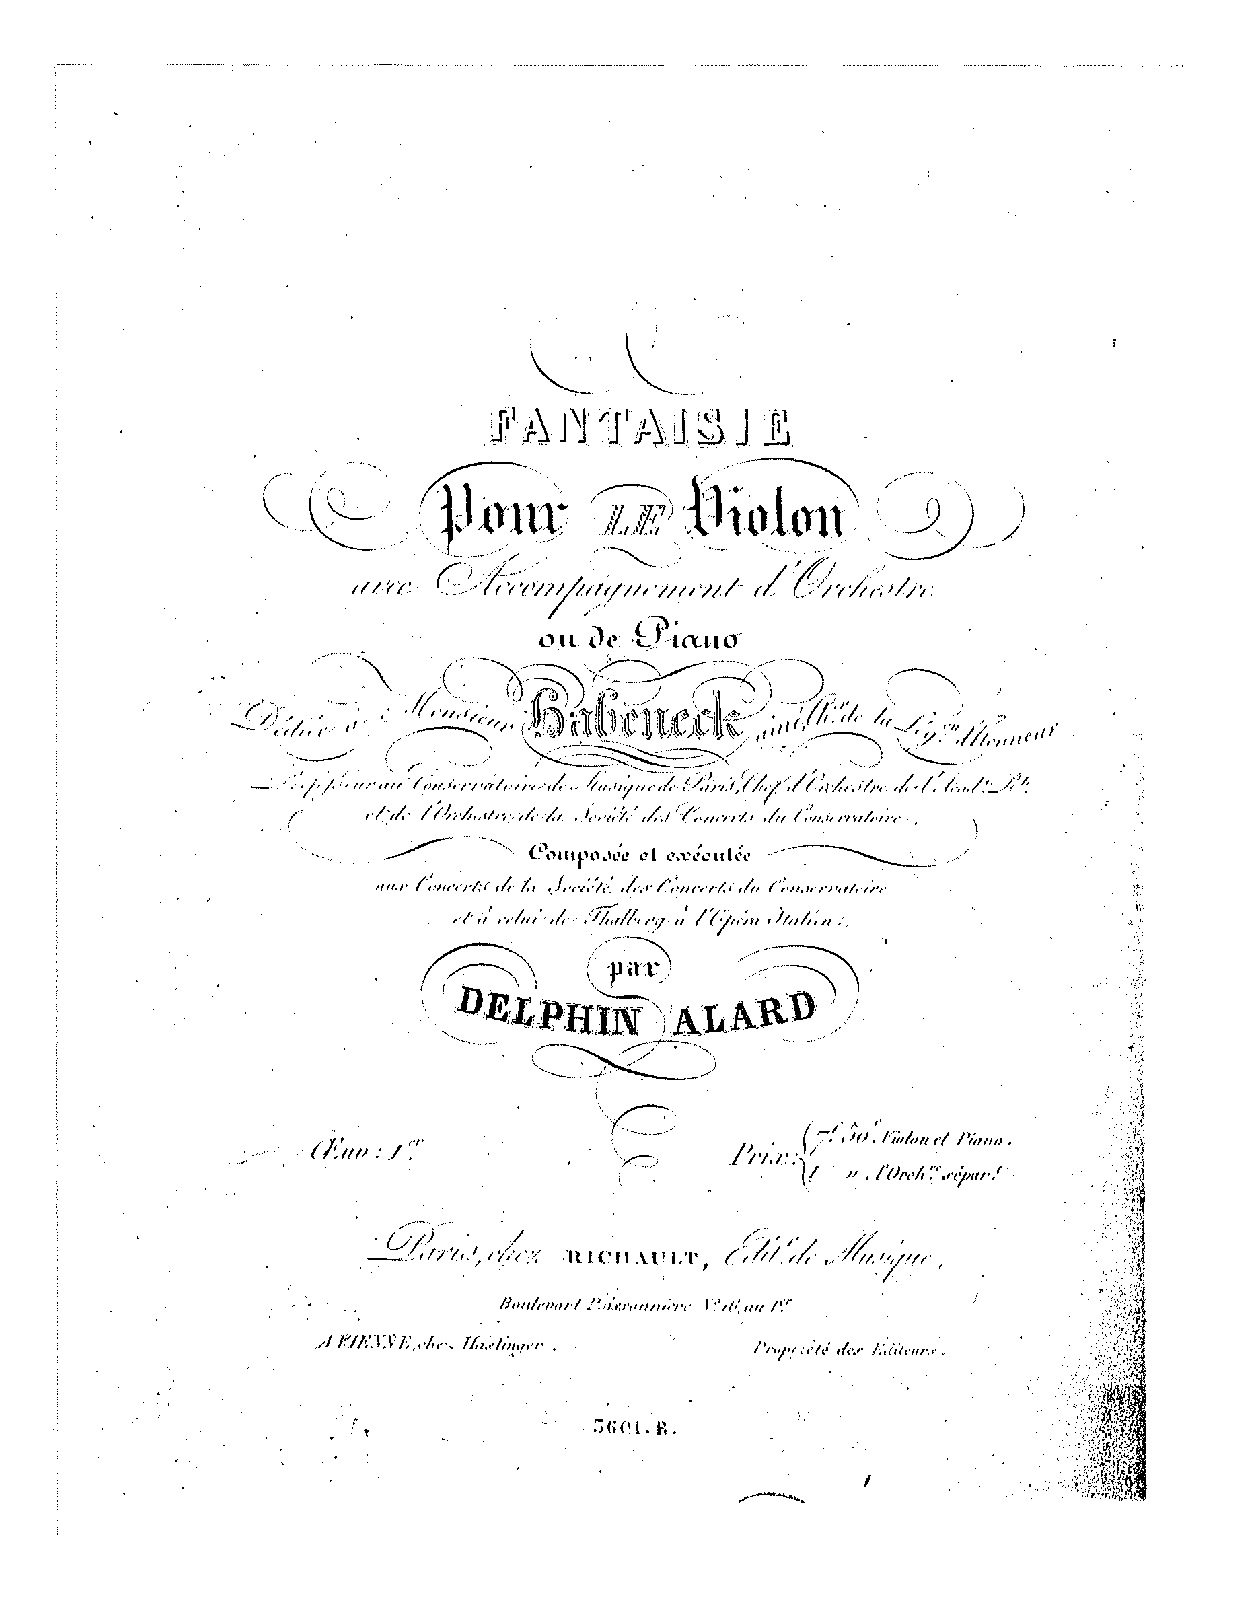 FANTAISIE
Pour LE Violon
avec Accompagnement d'Orchestre
ou de Piano
Dédiée à Monsieur Habeneck ainé, Chr. de la Légon. d'Honneur
Professeur au Conservatoire de Musique de Paris, Chef d'Orchestre de l'Acade. Rle.
et de l'Orchestre de la Société des Concerts du Conservatoire,
Composée et exécutée
aux Concerts de la Société des Concerts du Conservatoire
et à celui de Thalberg à l'Opéra Italien:
par
DELPHIN ALARD
Œuv: 1er.
Prix: 7f 50c. Violon et Piano.
" l'Orchre. sépart.
Paris, chez RICHAULT, Editr. de Musique,
Boulevart Poissonnière No. 16, au 1er.
A VIENNE, chez Haslinger.
Propriété des Editeurs.
3601. R.